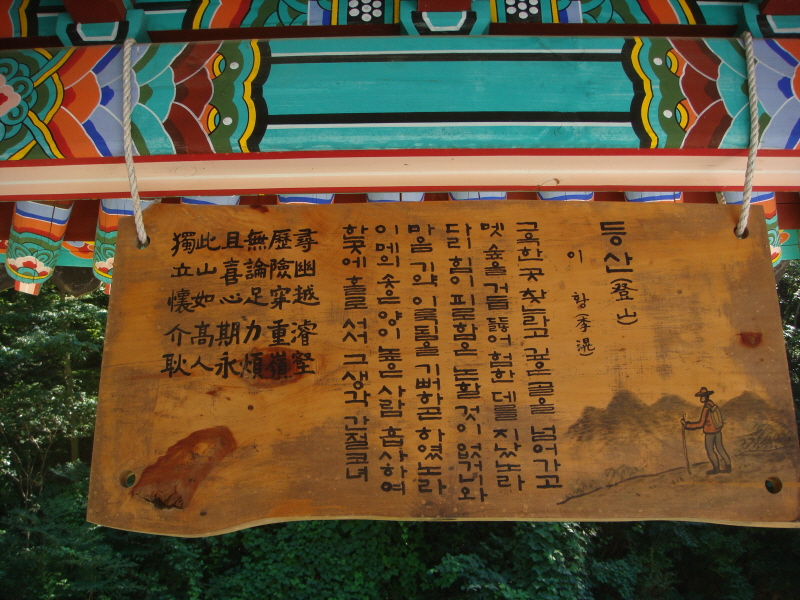 등산(登山)
이 황(李滉)
그윽한 곳 찾느라고 깊은 골을 넘어가고
멧숲을 거듭 뚫어 험한 데를 지났노라
다리 힘이 피로함은 논할 것이 없거니와
마음 기약 이룩됨을 기뻐하곤 하였노라
이 메의 솟은 양이 높은 사람 흡사하여
한곳에 홀로 서서 그 생각 간절코녀
尋幽越濬壑
歷險穿重嶺
無論足力煩
且喜心期永
此山如高人
獨立懷介耿